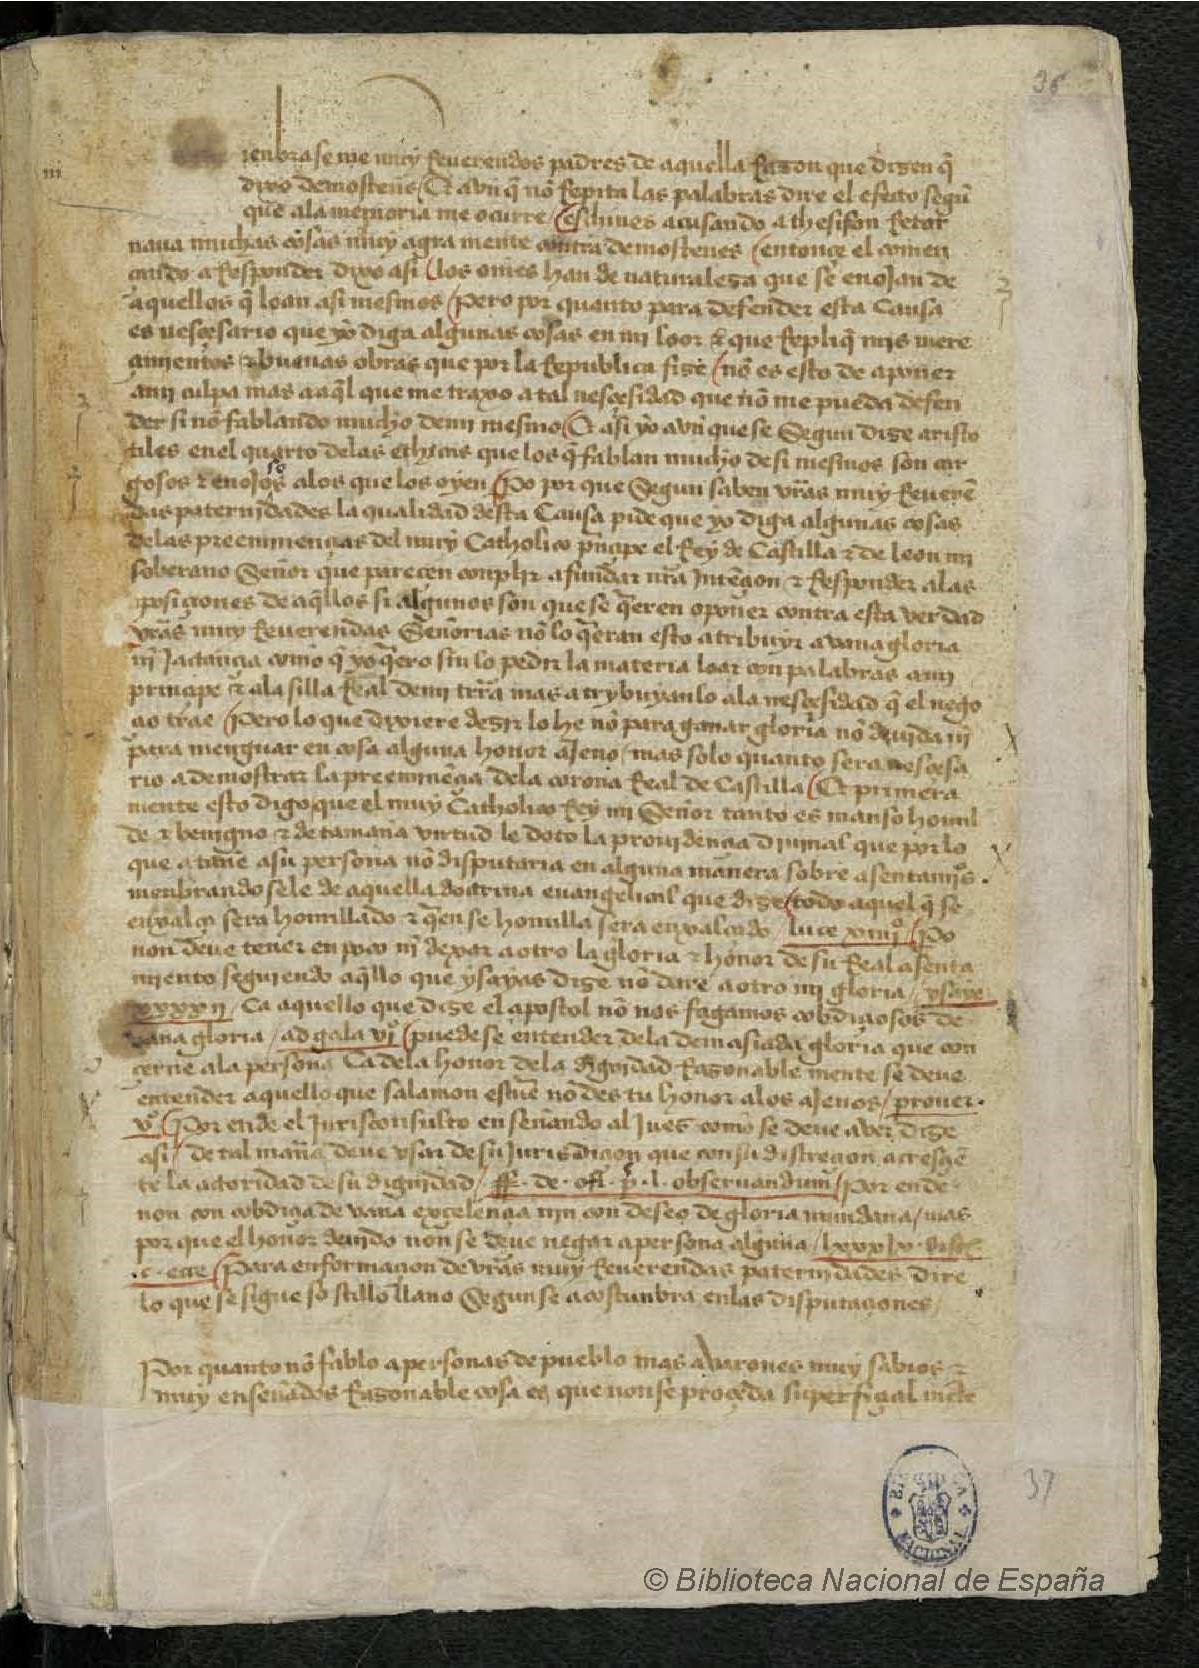 36
ienbrase me muy Reuerendos padres de aquella Razon que dizen q̃
dixo demostenes / Et avn q̃ nõ Repita las palabras dire el efecto segũ
que ala memoria me ocurre / eschines acusando a thesifon Retor
naua muchas cosas muy agra mente contra demostenes / entonçe el comen
cando a Responder dixo asi / los omes han de naturaleza que se enojan de
aquellos q̃ loan asi mesmos / Pero por quanto para defender esta Causa
es nesçesario que yo diga algunas cosas en mi loor & que Repliq̃ mis mere
cimientos & buenas obras que por la Republica fize / nõ es esto de aponer
a mi culpa mas a aq̃l que me traxo a tal nesçesidad que nõ me pueda defen
der si nõ fablando mucho demi mesmo / Et asi yo avn que se Segun dize aristo
tiles en el quarto delas ethicas que los q̃ fablan mucho de si mesmos son car
gosos & enojosos alos que los oyen / Po por que Segun saben vr̃as muy Reuerẽ
das paternidades la qualidad desta Causa pide que yo diga algunas cosas
delas preeminençias del muy Catholico pñcipe el Rey de Castilla & de leon mi
soberano Señor que paresçen conplir a fundar nr̃a Intẽçion & Responder alas
posiçiones de aq̃llos si algunos son que se q̃eren oponer contra esta verdad
vr̃as muy Reuerendas Señorias nõ lo q̃eran esto atribuyr a vana gloria
nĩ Jactançia como q̃ yo q̃ero sin lo pedir la materia loar con palabras a mi
prinçipe & ala silla Real demi tr̃ra mas atrybuyanlo ala nesçesidad q̃ el nego
çio trae / Pero lo que dixiere dezir lo he nõ para ganar gloria nõ deuida nĩ
para menguar en cosa alguna honor ajeno / mas solo quanto sera nesçesa
rio a demostrar la preeminẽçia dela corona Real de Castilla / Et primera
mente esto digo que el muy Catholico Rey mi Señor tanto es manso homil
de & benigno & de tamaña virtud le doto la prouidençia diuinal que por lo
que atañe a su persona nõ disputaria en alguna manera sobre asentamiẽ͂tos.
menbrando se le de aquella doctrina euangelical que dize / todo aquel q̃ se
enxalça sera homillado & q̃en se homilla sera enxalçado / luce xiiijº / Po
non deue tener en poco nĩ dexar a otro la gloria & honor de su Real asenta
miento seguiendo aq̃llo que ysayas dize nõ dare a otro mi gloria / ysaye
xxxxij / Ca aquello que dize el apostol nõ nos fagamos cobdiçiosos de
vana gloria / ad gala vjº / puedese entender dela demasiada gloria que con
çerne ala persona Ca dela honor dela dignidad Razonable mente se deue
entender aquello que salamon escriue nõ des tu honor alos ajenos / prouer.
vº / Por ende el Jurisconsulto enseñando al Juez como se deue aver dize
asi / de tal mañra deue vsar de su Jurisdiçion que con su discreçion acresçiẽ
te la actoridad de su dignidad / ff. de. offi. p̃. l. obseruandum / Por ende
non con cobdiçia de vana exçelençia nin con deseo de gloria mundana / mas
por que el honor deuido non se deue negar a persona alguna / lxxxix. disti.
.c. ecce / Para enformaçion de vr̃as muy Reuerendas paternidades dire
lo que se sigue so stillo llano Segun se acostunbra en las disputaçiones /
Por quanto nõ fablo a personas de pueblo mas a varones muy sabios &
muy enseñados Razonable cosa es que non se proçeda superfiçial mẽte
BIBLIOTECA NACIONAL
37
© Biblioteca Nacional de España